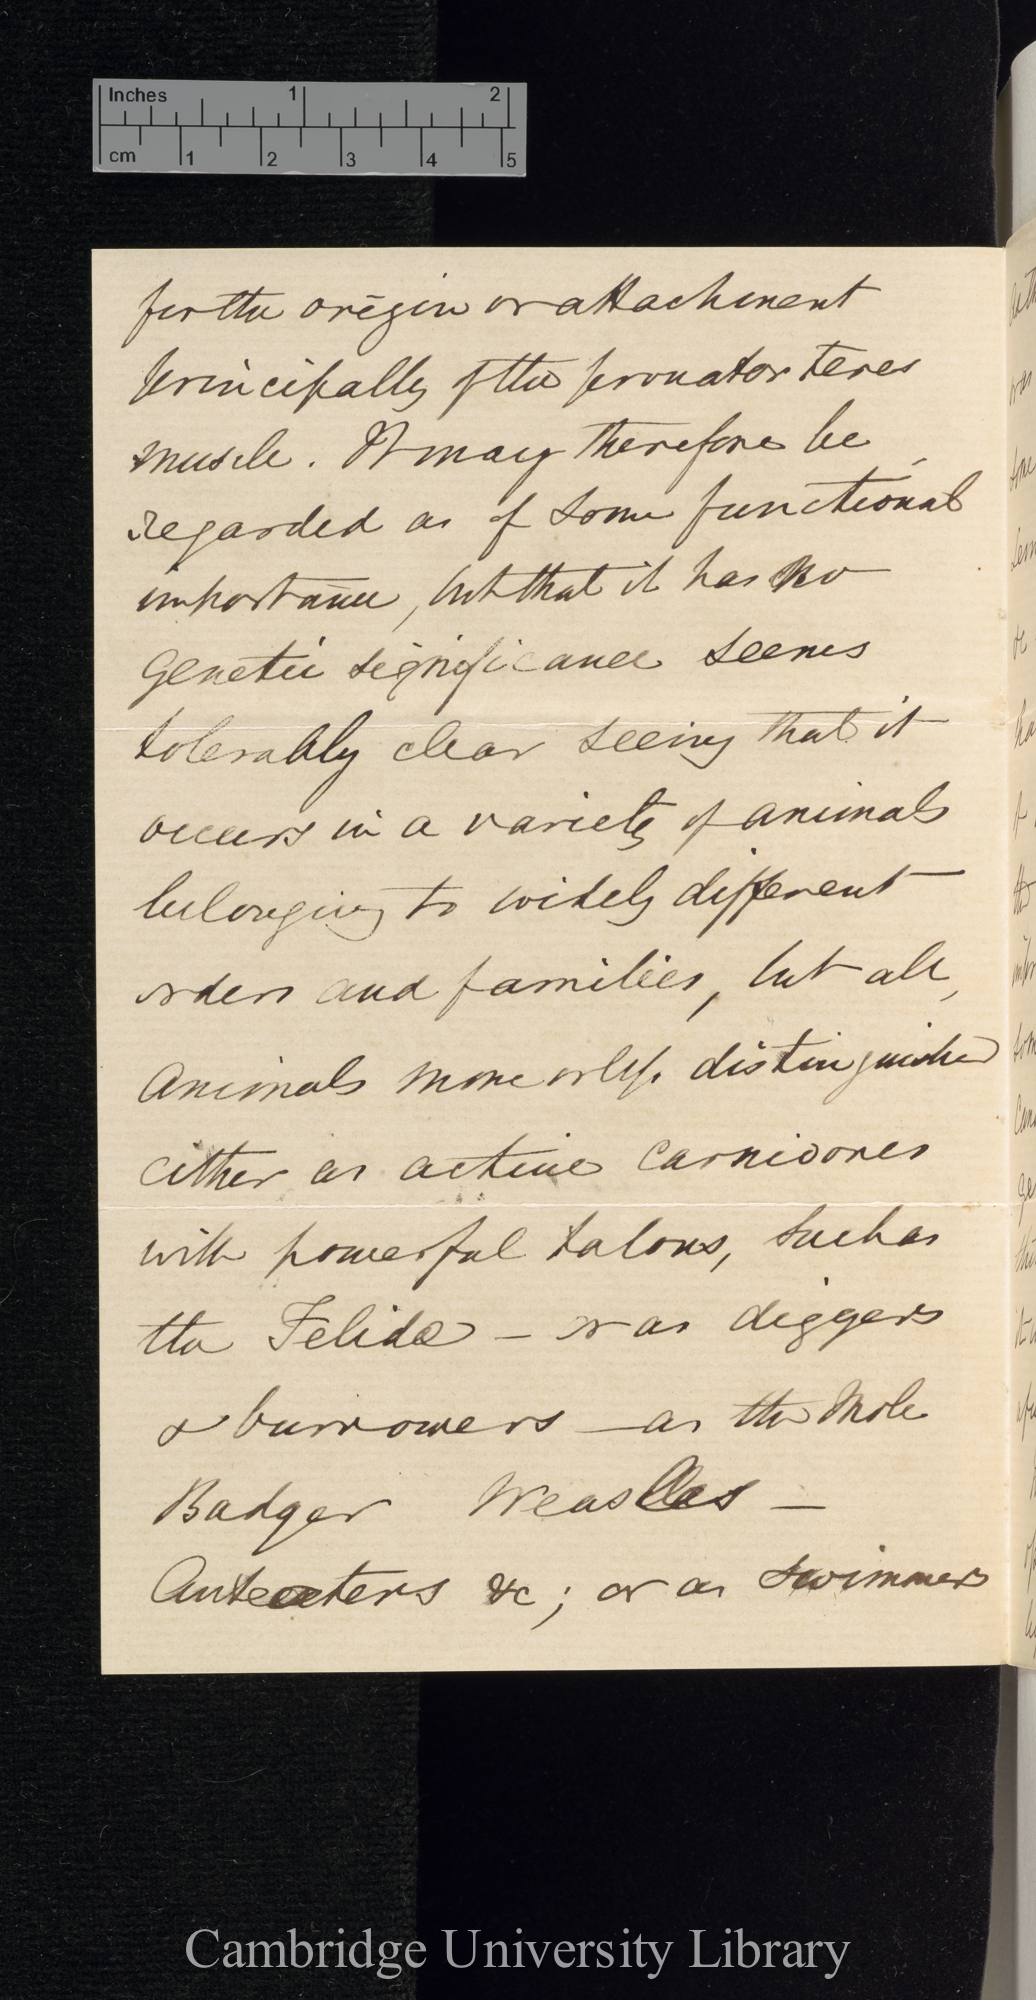 Inches 1 2
cm 1 2 3 4 5
for the origin or attachment
principally of the pronator teres
muscle. It may therefore be
regarded as of some functional
importance, but that it has no
genetic significance seems
tolerably clear seeing that it
occurs in a variety of animals
belonging to widely different
orders and families, but all,
animals more or less distinguished
either as active carnivores
with powerful talons, such as
the Felidæ – or as diggers
& burrowers – as the Mole
Badger Weasles –
Anteaters &c; or as swimmers
Cambridge University Library